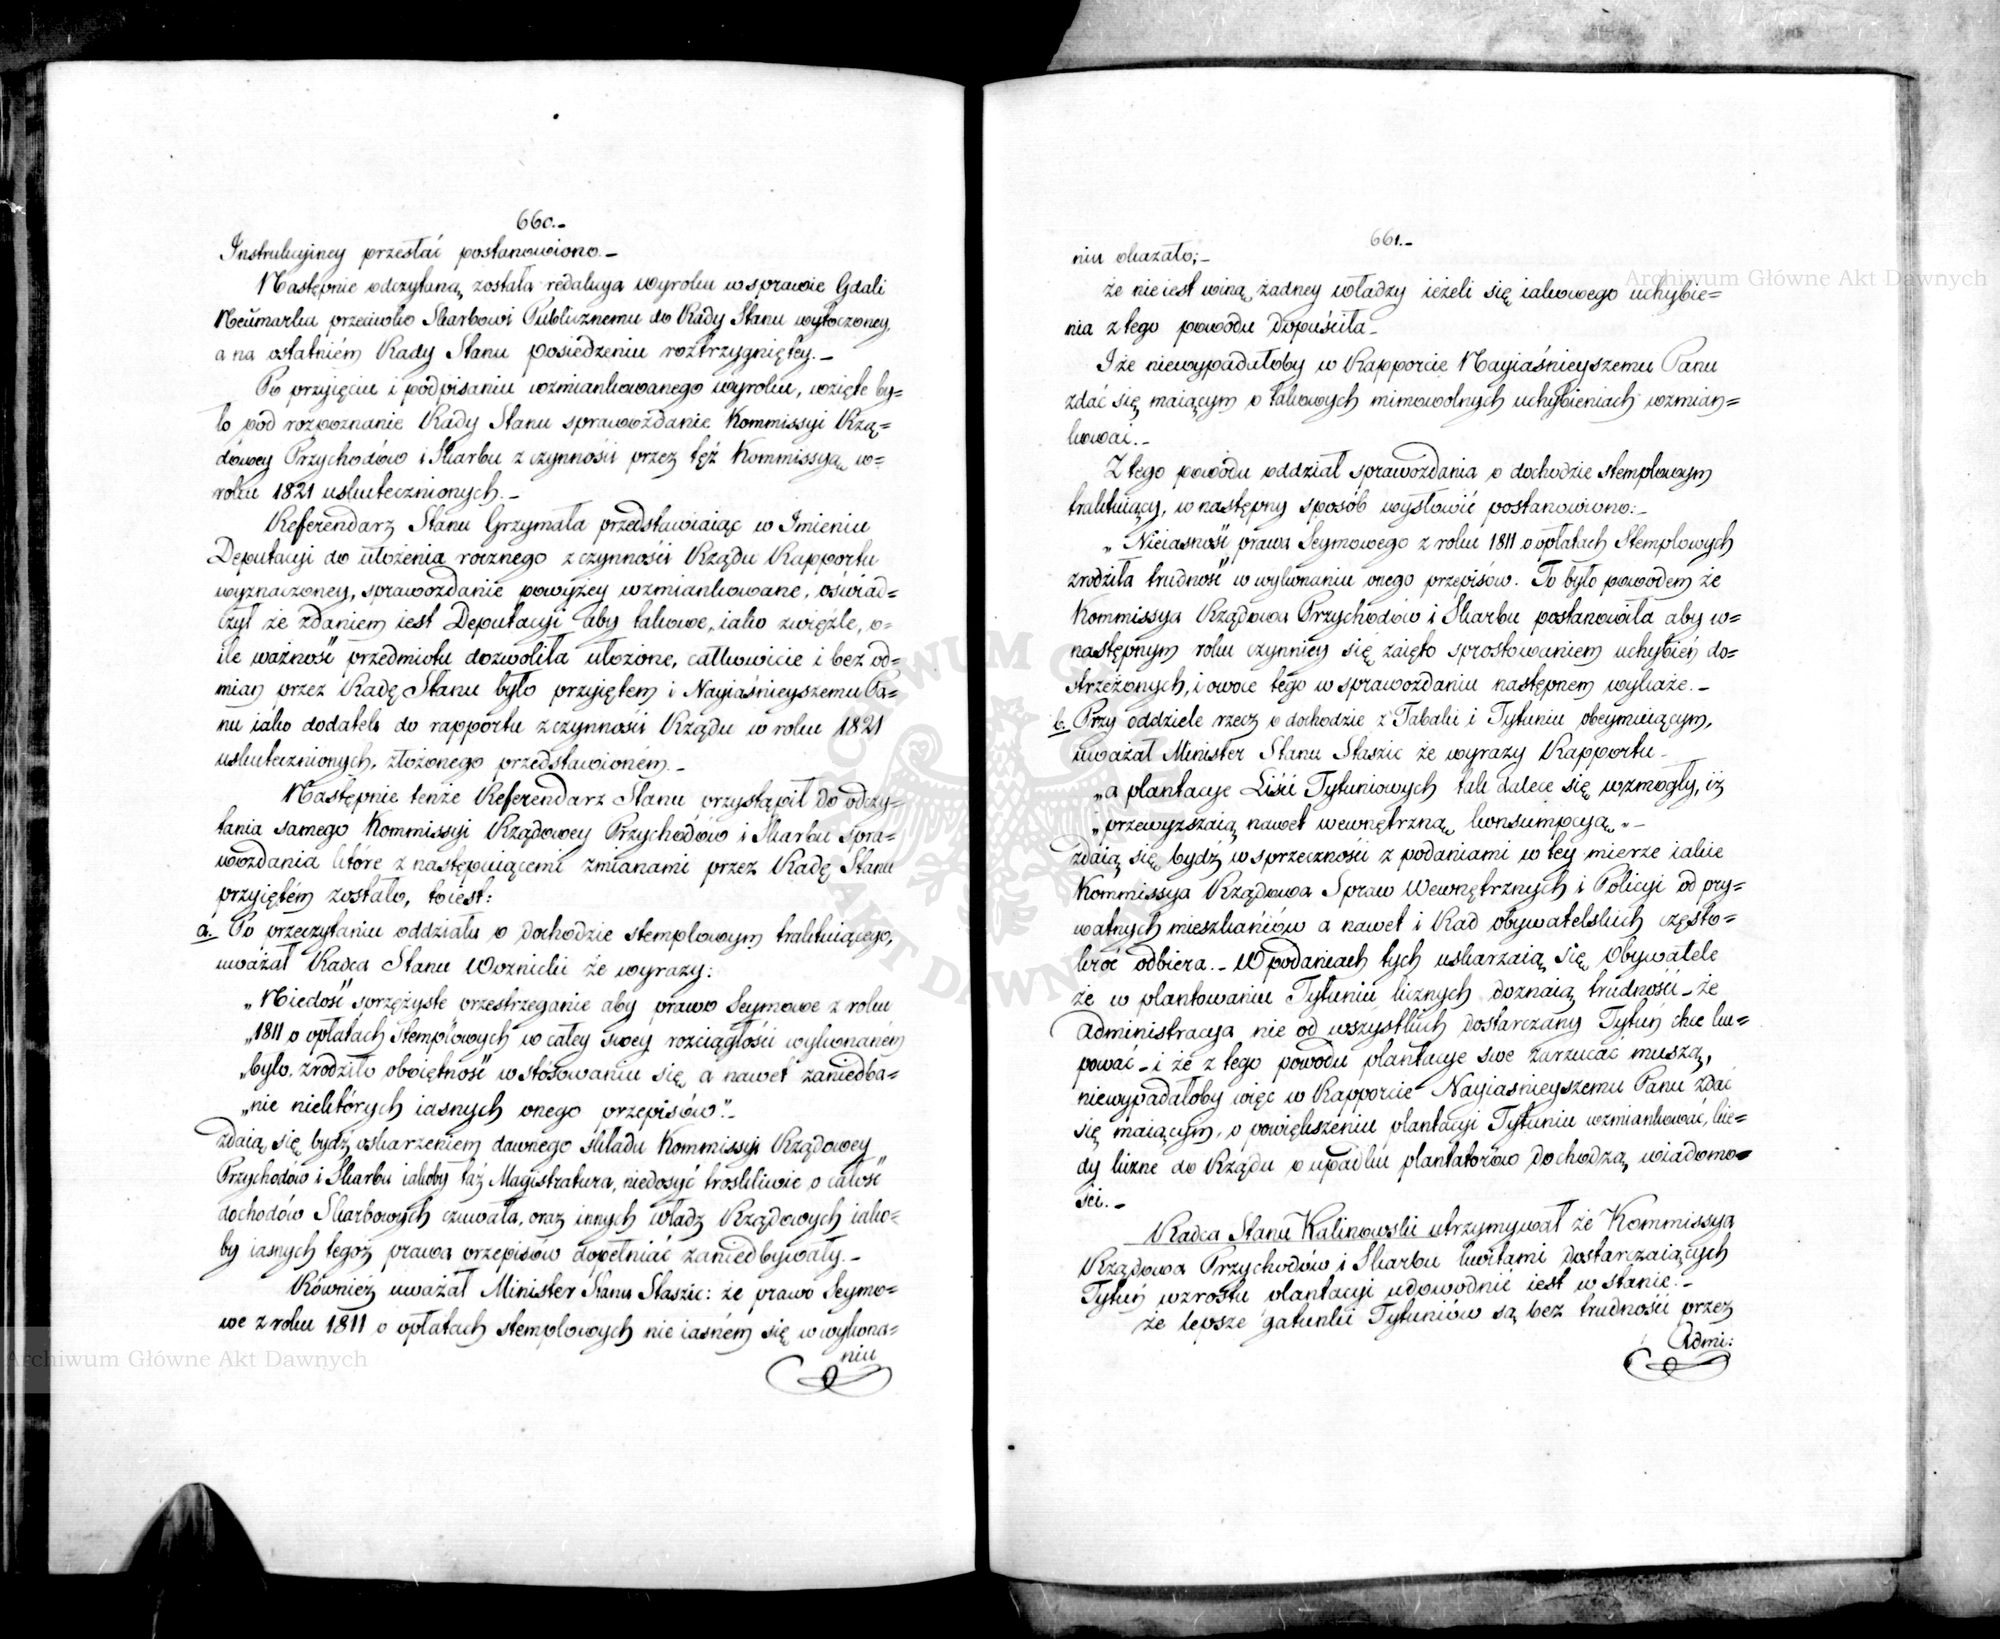 660.-
Instrukcyiney przesłać postanowiono.-
Następnie odczytaną została redakcya wyroku w sprawie Gdali
Neümarku przeciwko Skarbowi Publicznemu do Rady Stanu wytoczoney,
a na ostatniém Rady Stanu posiedzeniu roztrzygniętey.-
Po przyięciu i podpisaniu wzmiankowanego wyroku, wzięte by=
ło pod rozpoznanie Rady Stanu sprawozdanie Kommissyi Rzą=
dowey Przychodów i Skarbu z czynności przez tęż Kommissyą w=
roku 1821 uskutecznionych.-
Referendarz Stanu Grzymała przedstawiaiąc w Imieniu
Deputacyi do ułożenia rocznego z czynności Rządu Rapportu
wyznaczoney, sprawozdanie powyżey wzmiankowane, oświad=
czył że zdaniem iest Deputacyi aby takowe, iako zwięźle, o=
ile ważność przedmiotu dozwoliła ułożone, całkowicie i bez od=
mian przez Radę Stanu było przyiętem i Nayiaśnieyszemu Pa=
nu iako dodatek do rapportu z czynności Rządu w roku 1821
uskutecznionych, złożonego przedstawioném.-
Następnie tenże Referendarz Stanu przystąpił do odczy=
tania samego Kommissyi Rządowey Przychodów i Skarbu spra=
wozdania które z następuiącemi zmianami przez Radę Stanu
przyiętém zostało, toiest:
a. Po przeczytaniu oddziału o dochodzie stemplowym traktuiącego,
uważał Radca Stanu Woznicki że wyrazy:
„Niedość sprężyste przestrzeganie aby prawo Seymowe z roku
„1811 o opłatach stemplowych w całey swey rozciągłości wykonaném
„było, zrodziło oboiętność w stósowaniu się, a nawet zaniedba=
„nie niektórych iasnych onego przepisów."-
zdaią się bydź oskarzeniem dawnego składu Kommissyi Rządowey
Przychodów i Skarbu iakoby taż Magistratura, niedosyć troskliwie o całość
dochodów Skarbowych czuwała, oraz innych władz Rządowych iako=
by iasnych tegoż prawa przepisów dopełniać zaniedbywały.-
Również uważał Minister Stanu Staszic: że prawo Seymo=
we z roku 1811 o opłatach stemplowych nie iasném się w wykona=
niu
661.-
niu okazało;-
że nie iest winą żadney władzy ieżeli się iakowego uchybie=
nia z tego powodu dopuściła-
I że niewypadałoby w Rapporcie Nayiaśnieyszemu Panu
zdać się maiącym o takowych mimowolnych uchybieniach wzmian=
kować.-
Z tego powodu oddział sprawozdania o dochodzie stemplowym
traktuiący, w następny sposób wysłowić postanowiono:-
„Nieiasność prawa Seymowego z roku 1811 o opłatach Stemplowych
zrodziła trudność w wykonaniu onego przepisów. To było powodem że
Kommissya Rządowa Przychodów i Skarbu postanowiła aby w=
następnym roku czynniey się zaięto sprostowaniem uchybień do=
strzeżonych, i owoce tego w sprawozdaniu następnem wykaże.-
b. Przy oddziele rzecz o dochodzie z Tabaki i Tytuniu obeymuiącym,
uważał Minister Stanu Staszic że wyrazy Rapportu-
„a plantacye Liści Tytuniowych tak dalece się wzmogły, iż
„przewyższaią nawet wewnętrzną konsumpcyą"-
zdaią się bydź w sprzeczności z podaniami w tey mierze iakie
Kommissya Rządowa Spraw Wewnętrznych i Policyi od pry=
watnych mieszkańców a nawet i Rad obywatelskich często=
kroć odbiera.- W podaniach tych uskarzaią się Obywatele
że w plantowaniu Tytuniu licznych doznaią trudności - że
Administracya nie od wszystkich dostarczany Tytuń chce ku=
pować - i że z tego powodu plantacye swe zarzucać muszą,
niewypadałoby więc w Rapporcie Nayiaśnieyszemu Panu zdać
się maiącym, o powiększeniu plantacyi Tytuniu wzmiankować, kie=
dy liczne do Rządu o upadku plantatorów dochodzą wiadomo=
ści.-
Radca Stanu Kalinowski utrzymywał że Kommissya
Rządowa Przychodów i Skarbu kwitami dostarczaiących
Tytuń wzrostu plantacyi udowodnić iest w stanie.-
że lepsze gatunki Tytuniów są bez trudności przez
Admi:
Archiwum Główne Akt Dawnych
Archiwum Główne Akt Dawnych
ARCHIWUM GŁÓWNE AKT DAWNYCH